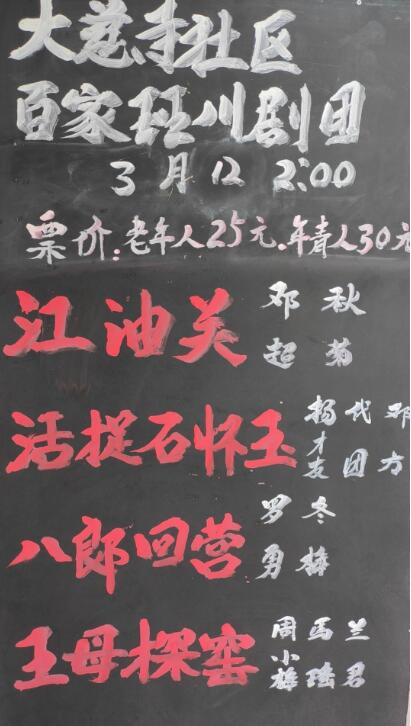 大慈寺社区
百家班川剧团
3月12 2:00
票价:老年人25元.年青人30元
江油关 邓超 秋菊
活捉石怀玉 杨才友 代团 邓方
八郎回营 罗勇 冬梅
王母探窑 周小梅 马瑶 兰君